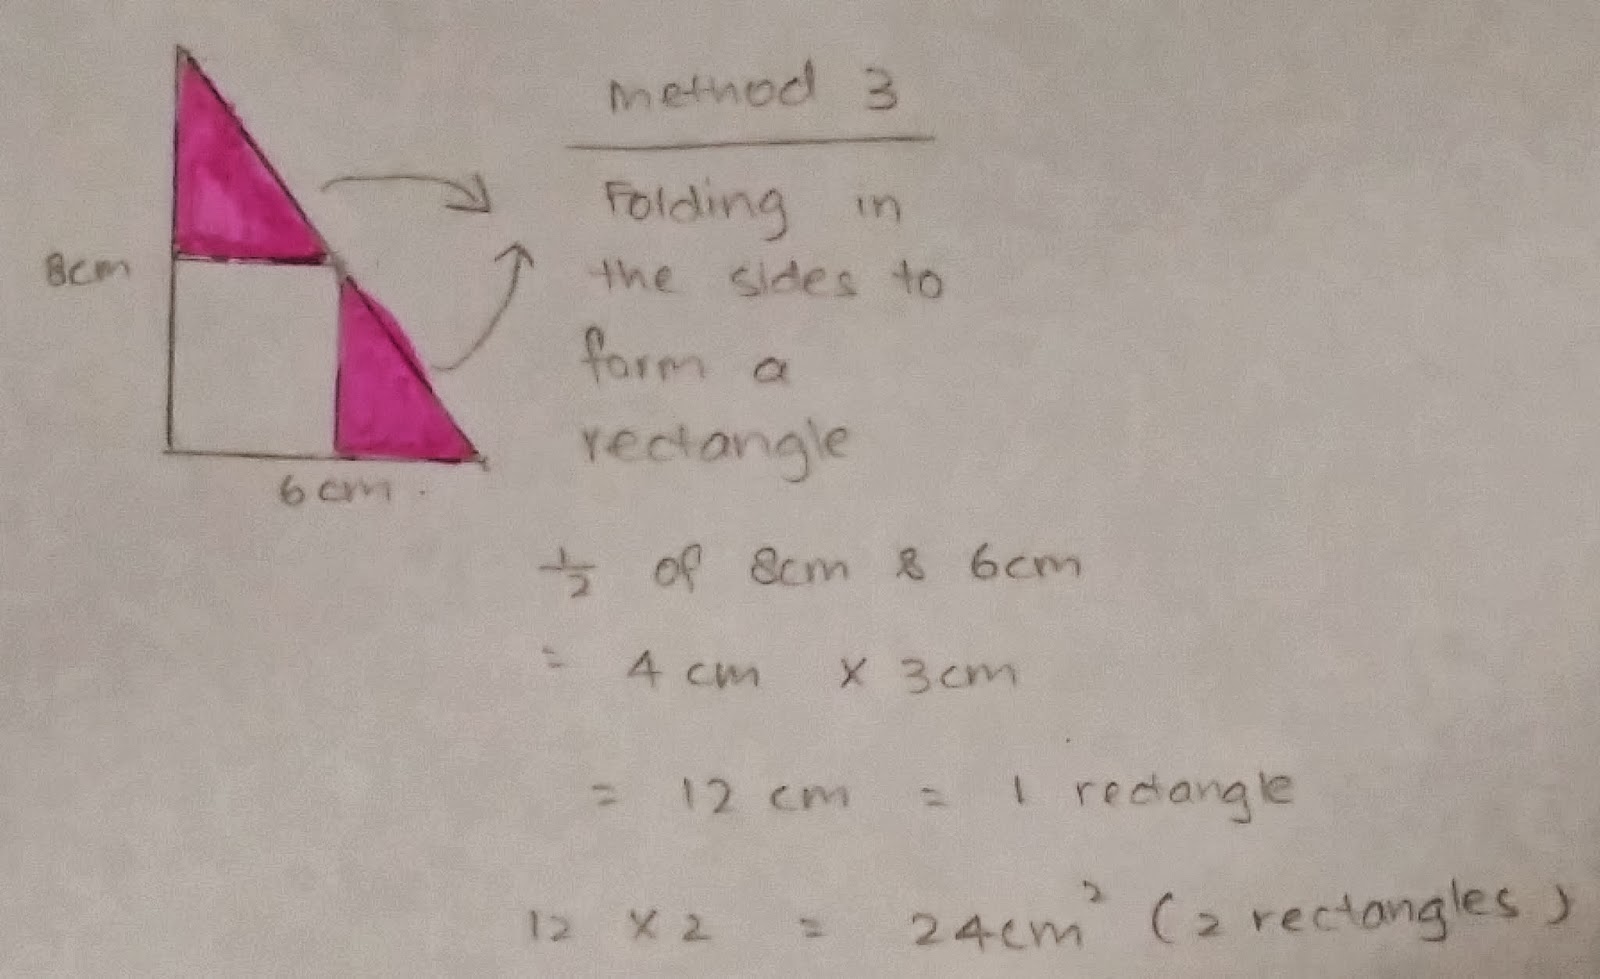 Method 3
Folding in
the sides to
8cm
form a
rectangle
6cm.
1/2 of 8cm & 6cm
= 4cm x 3cm
= 12 cm = 1 rectangle
12 x 2 = 24cm² (2 rectangles)